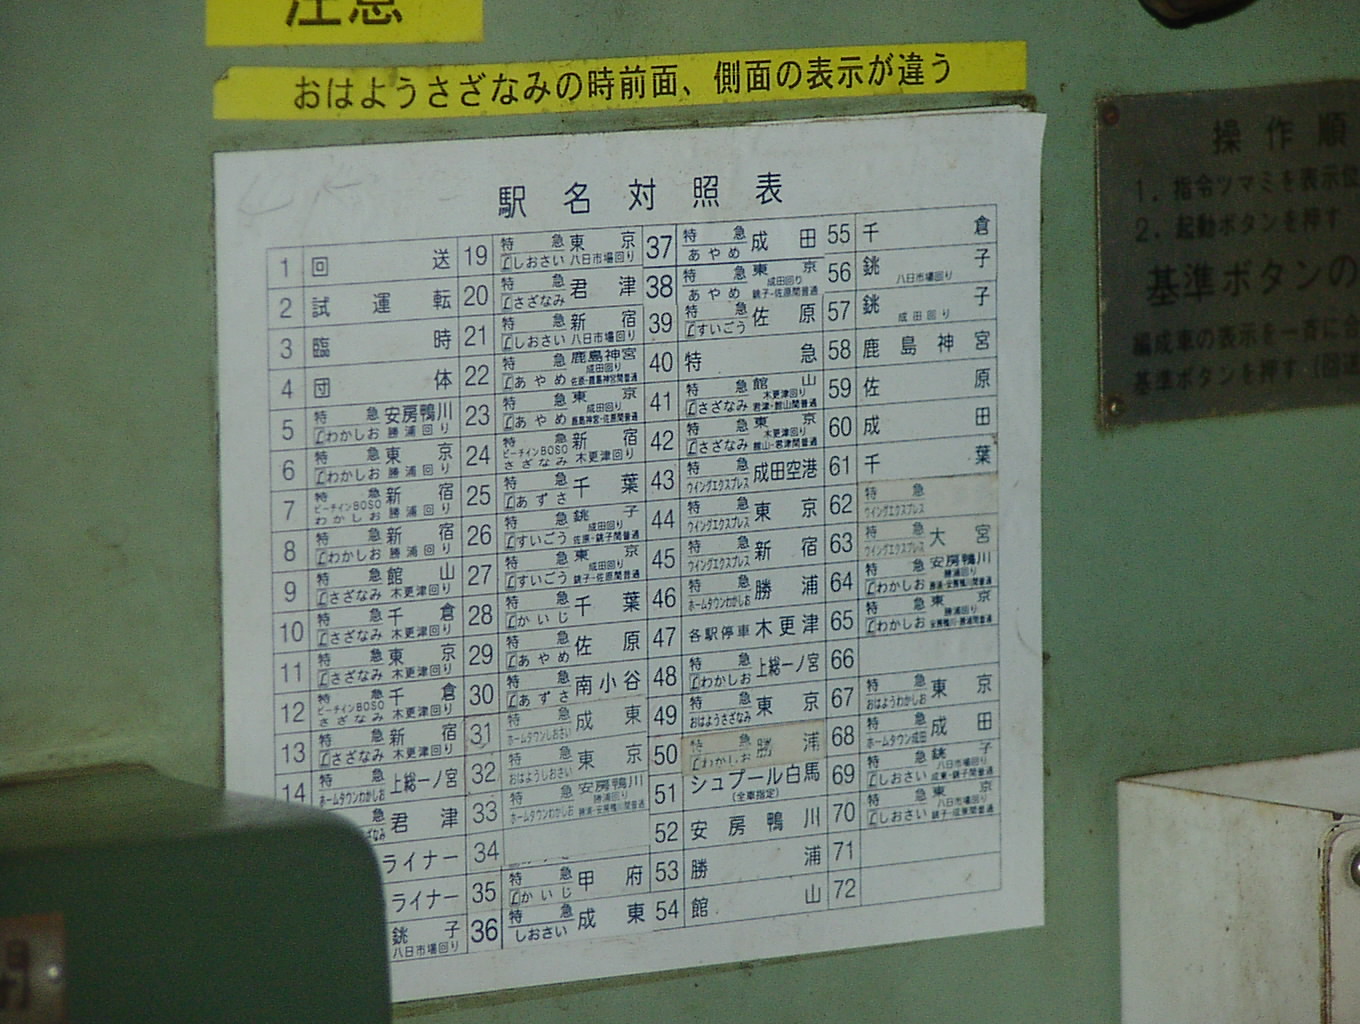 注意
おはようさざなみの時前面、側面の表示が違う
駅名対照表
1 回送
2 試運転
3 臨時
4 団体
5 特急 わかしお 安房鴨川 勝浦回り
6 特急 わかしお 東京 勝浦回り
7 特急 ビーチインBOSO わかしお 新宿 勝浦回り
8 特急 わかしお 新宿 勝浦回り
9 特急 さざなみ 館山 木更津回り
10 特急 さざなみ 千倉 木更津回り
11 特急 さざなみ 東京 木更津回り
12 特急 ビーチインBOSO さざなみ 千倉 木更津回り
13 特急 さざなみ 新宿 木更津回り
14 特急 ホームタウンわかしお 上総一ノ宮
急 なみ 君津
ライナー
ライナー
銚子 八日市場回り
19 特急 しおさい 東京 八日市場回り
20 特急 さざなみ 君津
21 特急 しおさい 新宿 八日市場回り
22 特急 あやめ 鹿島神宮 成田回り 佐原-鹿島神宮間普通
23 特急 あやめ 東京 成田回り 鹿島神宮-佐原間普通
24 特急 ビーチインBOSO さざなみ 新宿 木更津回り
25 特急 あずさ 千葉
26 特急 すいごう 銚子 成田回り 佐原-銚子間普通
27 特急 すいごう 東京 成田回り 銚子-佐原間普通
28 特急 かいじ 千葉
29 特急 あやめ 佐原
30 特急 あずさ 南小谷
31 特急 ホームタウンしおさい 成東
32 特急 おはようしおさい 東京
33 特急 ホームタウンわかしお 安房鴨川 勝浦回り 勝浦-安房鴨川間普通
34
35 特急 かいじ 甲府
36 特急 しおさい 成東
37 特急 あやめ 成田
38 特急 あやめ 東京 成田回り 銚子-佐原間普通
39 特急 すいごう 佐原
40 特急
41 特急 さざなみ 館山 木更津回り 君津-館山間普通
42 特急 さざなみ 東京 木更津回り 館山-君津間普通
43 特急 ウイングエクスプレス 成田空港
44 特急 ウイングエクスプレス 東京
45 特急 ウイングエクスプレス 新宿
46 特急 ホームタウンわかしお 勝浦
47 各駅停車 木更津
48 特急 わかしお 上総一ノ宮
49 特急 おはようさざなみ 東京
50 特急 わかしお 勝浦
51 シュプール白馬 (全車指定)
52 安房鴨川
53 勝浦
54 館山
55 千倉
56 銚子 八日市場回り
57 銚子 成田回り
58 鹿島神宮
59 佐原
60 成田
61 千葉
62 特急 ウイングエクスプレス
63 特急 ウイングエクスプレス 大宮
64 特急 わかしお 安房鴨川 勝浦回り 勝浦-安房鴨川間普通
65 特急 わかしお 東京 勝浦回り 安房鴨川-勝浦間普通
66
67 特急 おはようわかしお 東京
68 特急 ホームタウン成田 成田
69 特急 しおさい 銚子 八日市場回り 成東-銚子間普通
70 特急 しおさい 東京 八日市場回り 銚子-成東間普通
71
72
操作順
1. 指令ツマミを表示位
2. 起動ボタンを押す
基準ボタンの
編成車の表示を一斉に合
基準ボタンを押す (回送